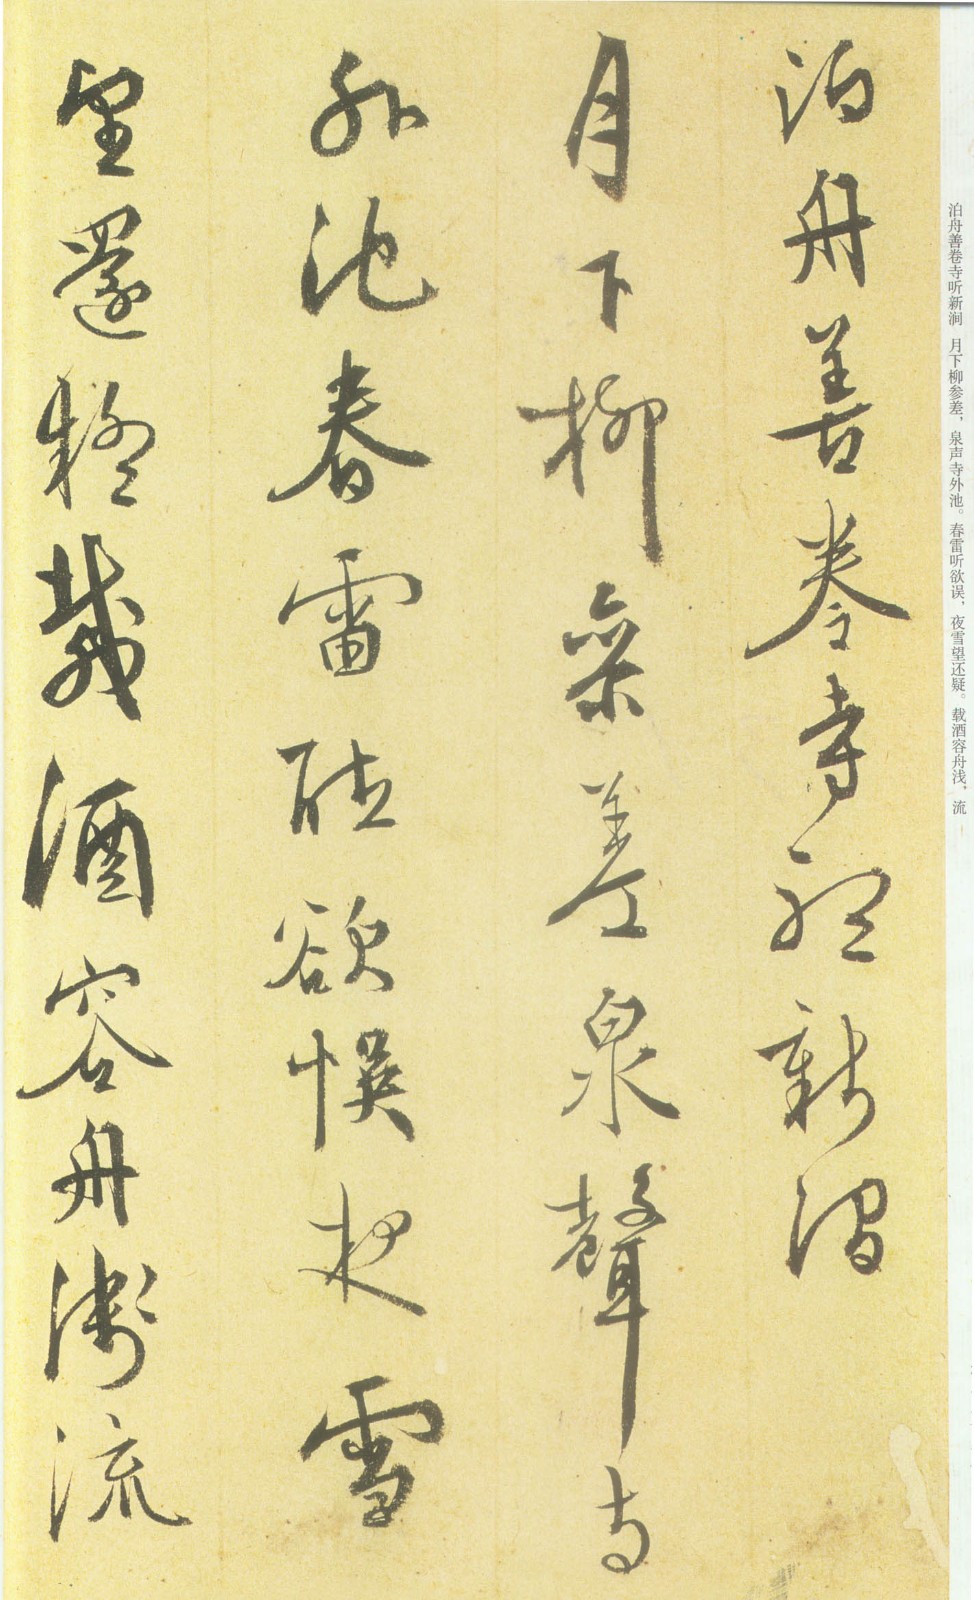 泊舟善卷寺听新涧　月下柳参差，泉声寺外池。春雷听欲误，夜雪望还疑。载酒容舟浅，流
泊舟善卷寺聽新澗
月下柳參差泉聲寺
外池春雷聽欲悞夜雪
望還疑載酒容舟淺流